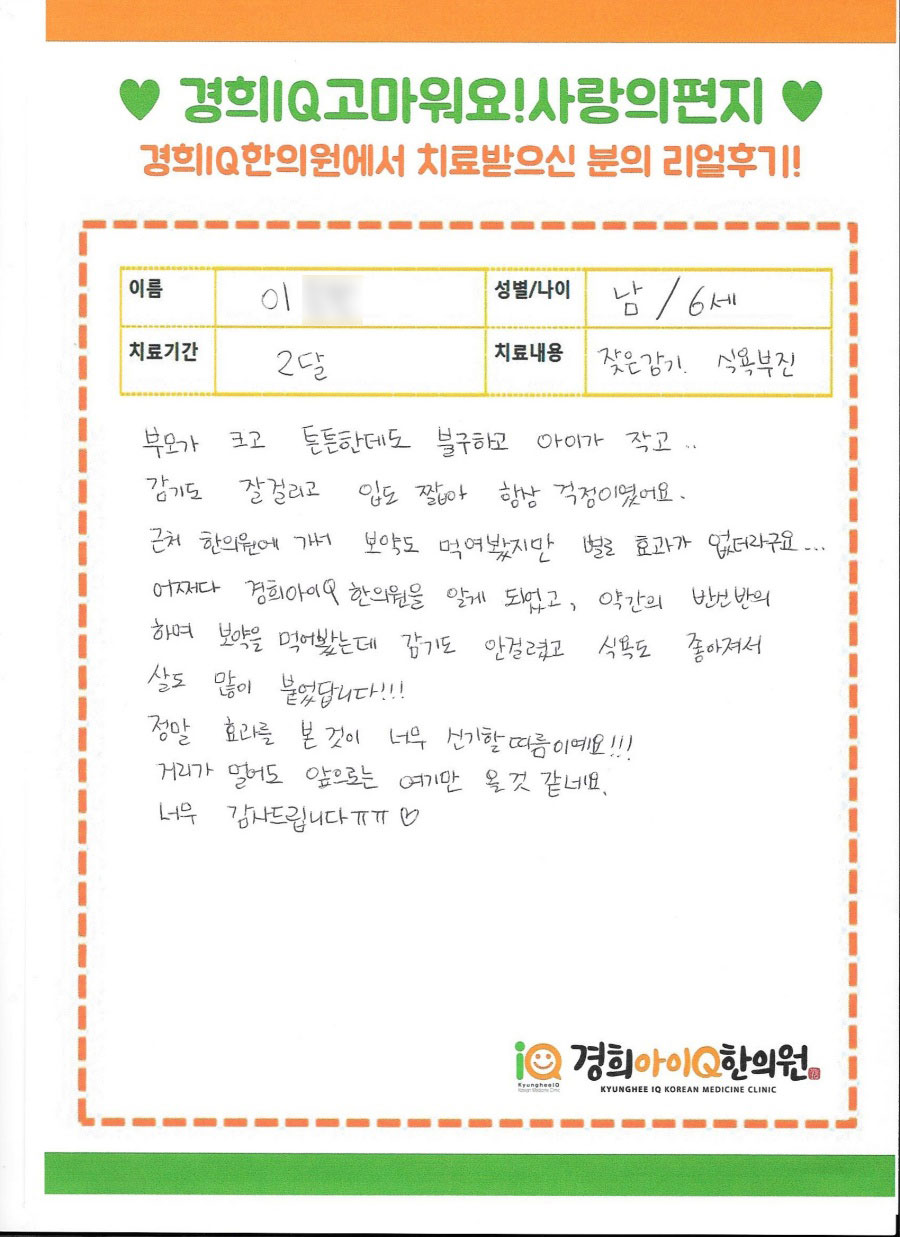 ♥ 경희IQ고마워요!사랑의편지 ♥
경희IQ한의원에서 치료받으신 분의 리얼후기!
이름 이 성별/나이 남 / 6세
치료기간 2달 치료내용 잦은감기. 식욕부진
부모가 크고 튼튼한데도 불구하고 아이가 작고..
감기도 잘걸리고 입도 짧아 항상 걱정이였어요.
근처 한의원에 가서 보약도 먹여봤지만 별로 효과가 없더라구요...
어쩌다 경희아이Q 한의원을 알게 되었고, 약간의 반신반의
하며 보약을 먹여봤는데 감기도 안걸렸고 식욕도 좋아져서
살도 많이 붙었답니다!!!
정말 효과를 본 것이 너무 신기할 따름이예요!!!
거리가 멀어도 앞으로는 여기만 올것 같네요.
너무 감사드립니다ㅠㅠ ♡
iQ 경희아이Q한의원
KyungheeIQ
Korean Medicine Clinic
KYUNGHEE IQ KOREAN MEDICINE CLINIC